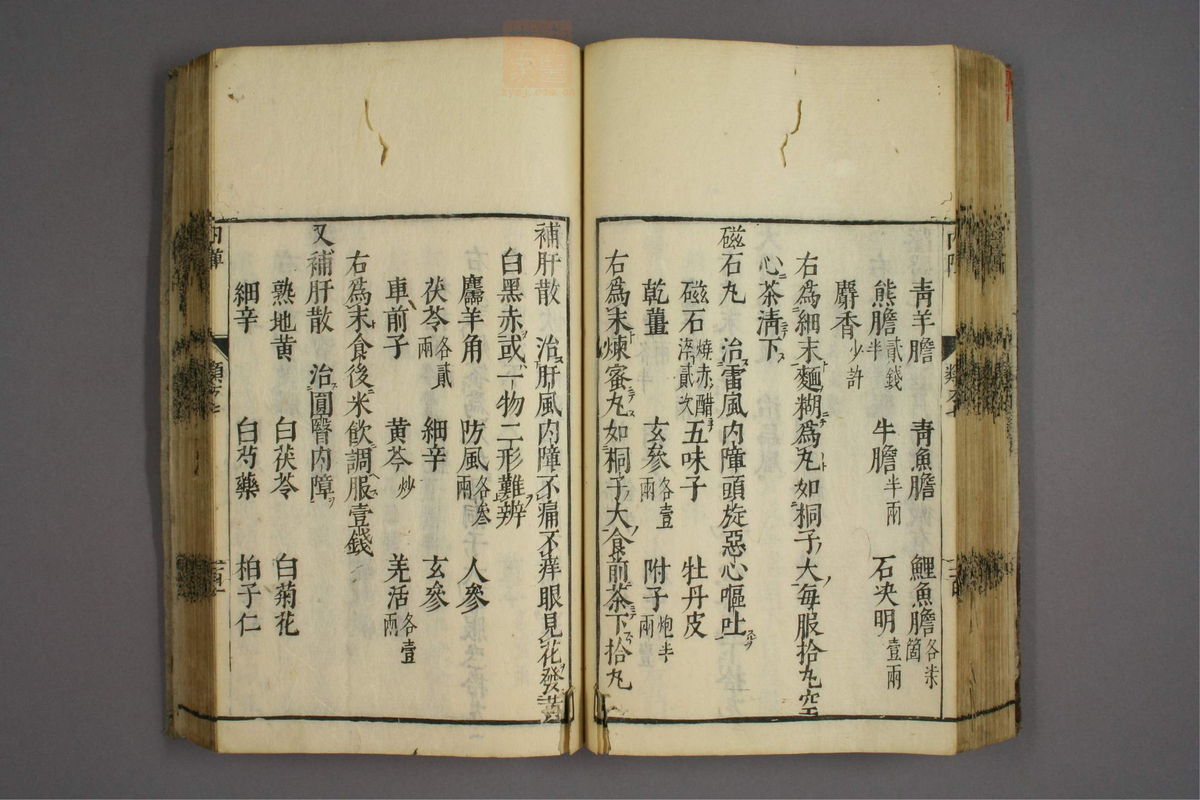 青羊膽 青魚膽 鯉魚膽各柒箇
熊膽貳錢半 牛膽半兩 石决明壹兩
麝香少許
右爲細末麵糊爲丸如桐子大每服拾丸空
心茶淸下
磁石丸 治雷風内障頭旋惡心嘔吐
磁石燒赤醋淬貳次 五味子 牡丹皮
乾薑 玄參各壹兩 附子炮半兩
右爲末煉蜜丸如桐子大食前茶下拾丸
補肝散 治肝風内障不痛不痒眼見花發黃
白黑赤或一物二形難辨
麢羊角 防風各叄兩 人參
茯苓各貳兩 細辛 玄參
車前子 黄芩炒 羌活各壹兩
右爲末食後米飮調服壹錢
又補肝散 治圓瞖内障
熟地黄 白茯苓 白菊花
細辛 白芍藥 柏子仁